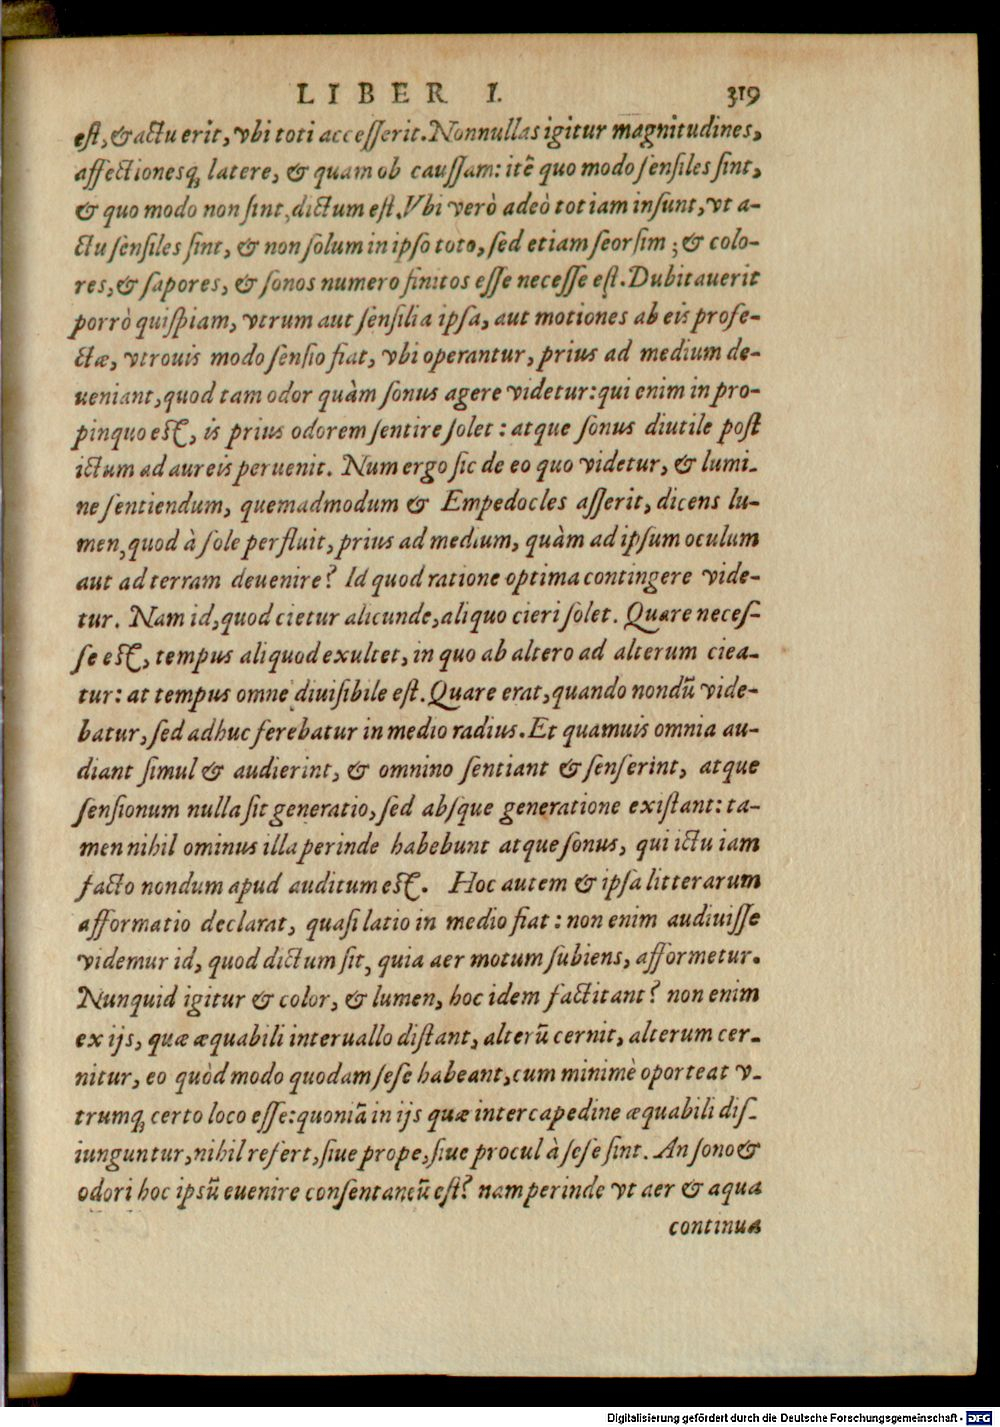 LIBER I. 319
eſt, & actu erit, vbi toti acceſſerit. Nonnullas igitur magnitudines,
affectionesq́; latere, & quam ob cauſſam: itē quo modo ſenſiles ſint,
& quo modo non ſint, dictum eſt. Vbi verò adeò tot iam inſunt, vt a-
ctu ſenſiles ſint, & non ſolum in ipſo toto, ſed etiam ſeorſim; & colo-
res, & ſapores, & ſonos numero finitos eſſe neceſſe eſt. Dubitauerit
porrò quiſpiam, vtrum aut ſenſilia ipſa, aut motiones ab eis profe-
ctæ, vtrouis modo ſenſio fiat, vbi operantur, prius ad medium de-
ueniant, quod tam odor quàm ſonus agere videtur: qui enim in pro-
pinquo eſt, is prius odorem ſentire ſolet: atque ſonus diutile poſt
ictum ad aureis peruenit. Num ergo ſic de eo quo videtur, & lumi-
ne ſentiendum, quemadmodum & Empedocles aſſerit, dicens lu-
men, quod à ſole perfluit, prius ad medium, quàm ad ipſum oculum
aut ad terram deuenire? Id quod ratione optima contingere vide-
tur. Nam id, quod cietur alicunde, aliquo cieri ſolet. Quare neceſ-
ſe eſt, tempus aliquod exultet, in quo ab altero ad alterum ciea-
tur: at tempus omne diuiſibile eſt. Quare erat, quando nondū vide-
batur, ſed adhuc ferebatur in medio radius. Et quamuis omnia au-
diant ſimul & audierint, & omnino ſentiant & ſenſerint, atque
ſenſionum nulla ſit generatio, ſed abſque generatione exiſtant: ta-
men nihil ominus illa perinde habebunt atque ſonus, qui ictu iam
facto nondum apud auditum eſt. Hoc autem & ipſa litterarum
afformatio declarat, quaſi latio in medio fiat: non enim audiuiſſe
videmur id, quod dictum ſit, quia aer motum ſubiens, afformetur.
Nunquid igitur & color, & lumen, hoc idem factitant? non enim
ex ijs, quæ æquabili interuallo diſtant, alterū cernit, alterum cer-
nitur, eo quòd modo quodam ſeſe habeant, cum minimè oporteat v-
trumq́; certo loco eſſe: quoniā in ijs quæ intercapedine æquabili diſ-
iunguntur, nihil refert, ſiue prope, ſiue procul à ſeſe ſint. An ſono &
odori hoc ipſū euenire conſentaneū eſt? nam perinde vt aer & aqua
continua
Digitalisierung gefördert durch die Deutsche Forschungsgemeinschaft - DFG